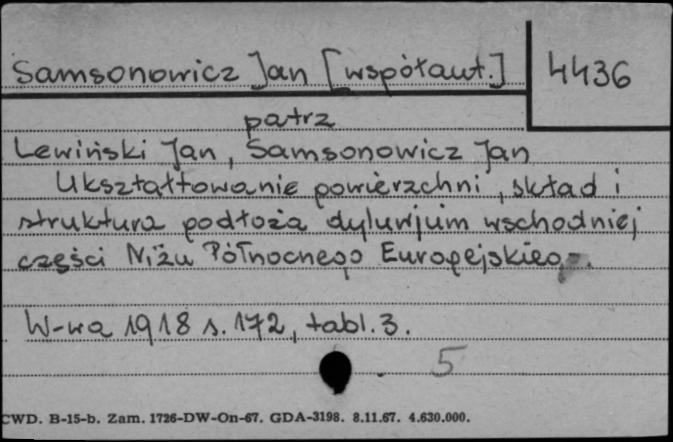 Samsonowicz Jan [współaut.] 4436
patrz
Lewiński Jan, Samsonowicz Jan
Ukształtowanie powierzchni, skład i
struktura podłoża dyluwjum wschodniej
części Niżu Północnego Europejskiego.
W-wa 1918 s. 172, tabl. 3.
5
CWD. B-15-b. Zam. 1726-DW-On-67. GDA-3198. 8.11.67. 4.630.000.